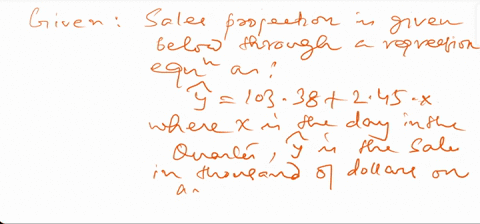 Given: Sales projection is given
below through a regression
equⁿ as:
ŷ = 103.38 + 2.45.x
where x is the day in the
Quarter, ŷ is the Sale
in thousand of dollars on
a